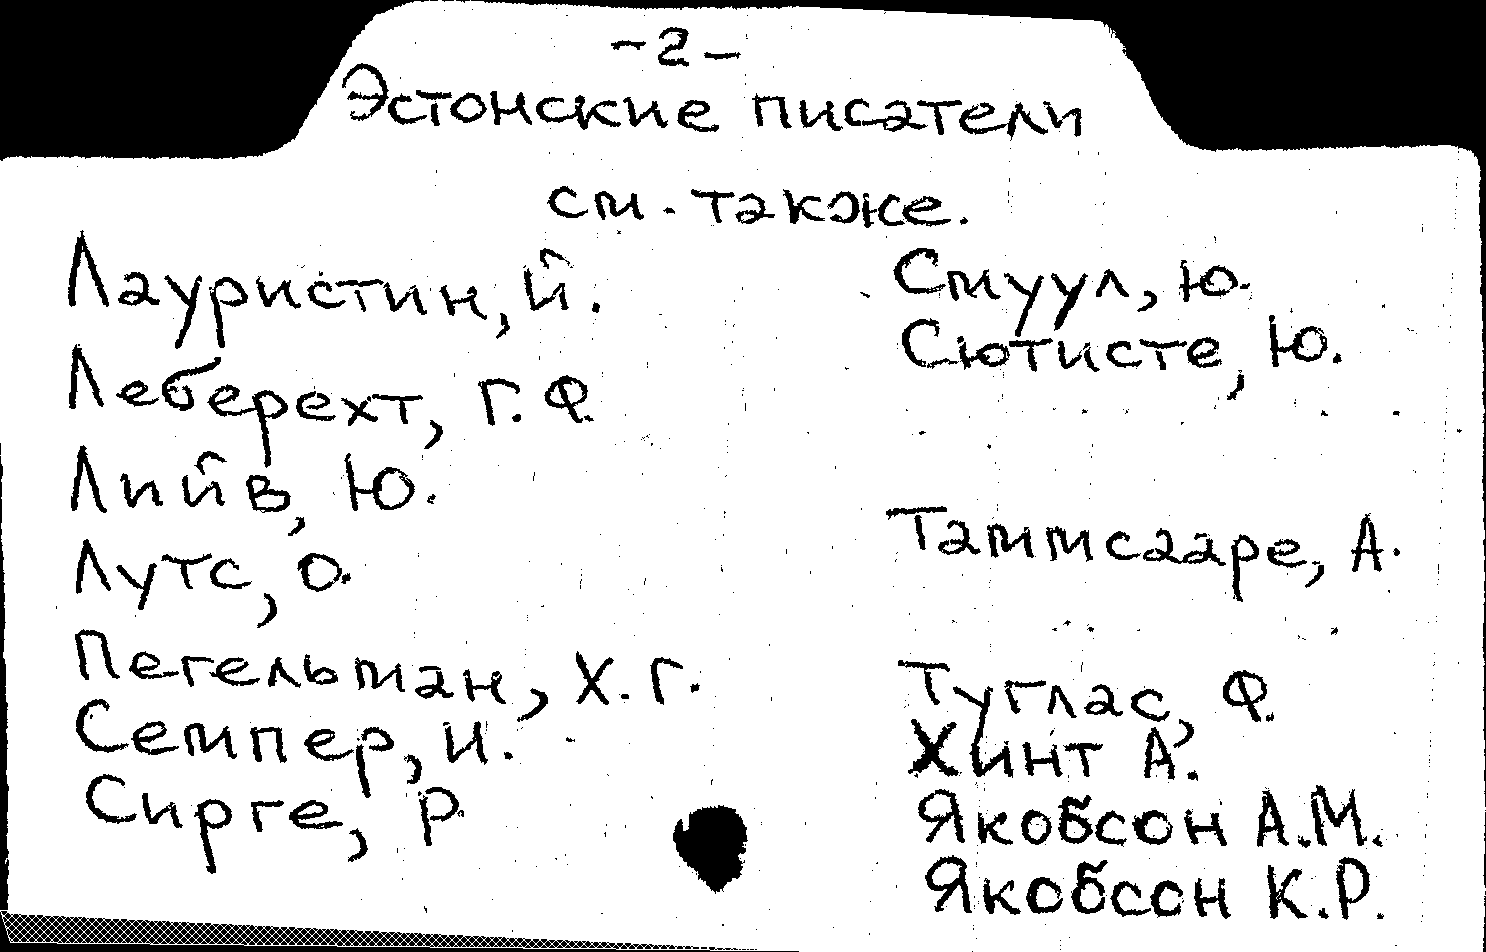 -2-
Эстонские писатели
см. также.
Лауристин, Й.
Леберехт, Г. Ф.
Лийв, Ю.
Лутс, О.
Пегельман, Х. Г.
Семпер, И.
Сирге, Р.
Смуул, Ю.
Сютисте, Ю.
Таммсааре, А.
Туглас, Ф.
Хинт А.
Якобсон А.М.
Якобсон К.Р.